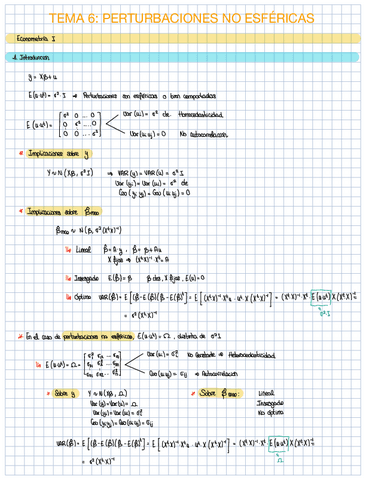 TEMA 6: PERTURBACIONES NO ESFÉRICAS
Econometría I
1. Introduccion
y = Xβ + u
E(u·uᵗ) = σ² I ⇒ Perturbaciones son esféricas o bien comportadas
E(u·uᵗ) = [σ² 0 ... 0 / 0 σ² ... 0 / 0 0 ... σ²] Var(uᵢ) = σ² cte. Homocedasticidad
Cov(uᵢ,uⱼ) = 0 No autocorrelación
Implicaciones sobre y
Y ~ N(Xβ, σ² I) ⇒ VAR(y) = VAR(u) = σ² I
Var(yᵢ) = Var(uᵢ) = σ² cte
Cov(yᵢ yⱼ) = Cov(uᵢ uⱼ) = 0
Implicaciones sobre β̂mco
β̂mco ~ N(β, σ²(XᵗX)⁻¹)
Lineal β̂ = A·y , β̂ = β + Au
X fijas ⇒ (XᵗX)⁻¹·Xᵗ = A
Insesgado E(β̂) = β β cte, X fijas, E(u) = 0
Óptimo VAR(β̂) = E[(β̂-E(β̂))(β̂-E(β̂))ᵗ] = E[(XᵗX)⁻¹Xᵗu·uᵗX(XᵗX)⁻¹] = (XᵗX)⁻¹·Xᵗ E(u·uᵗ) X(XᵗX)⁻¹
σ² I
= σ²(XᵗX)⁻¹
En el caso de perturbaciones no esféricas, E(u·uᵗ) = Ω, distinta de σ² I
E(u·uᵗ) = Ω = Var(uᵢ) = σᵢ² No constante ⇒ Heterocedasticidad
Cov(uᵢ,uⱼ) = σᵢⱼ ⇒ Autocorrelación
Sobre y Y ~ N(Xβ, Ω)
Var(y) = Var(u) = Ω
Var(yᵢ) = Var(uᵢ) = σᵢ²
Cov(yᵢ,yⱼ) = Cov(uᵢ,uⱼ) = σᵢⱼ
Sobre β̂mco: Lineal
Insesgado
No óptimo
VAR(β̂) = E[(β̂-E(β̂))(β̂-E(β̂))ᵗ] = E[(XᵗX)⁻¹Xᵗu·uᵗX(XᵗX)⁻¹] = (XᵗX)⁻¹Xᵗ E(u·uᵗ) X(XᵗX)⁻¹
Ω
= σ²(XᵗX)⁻¹